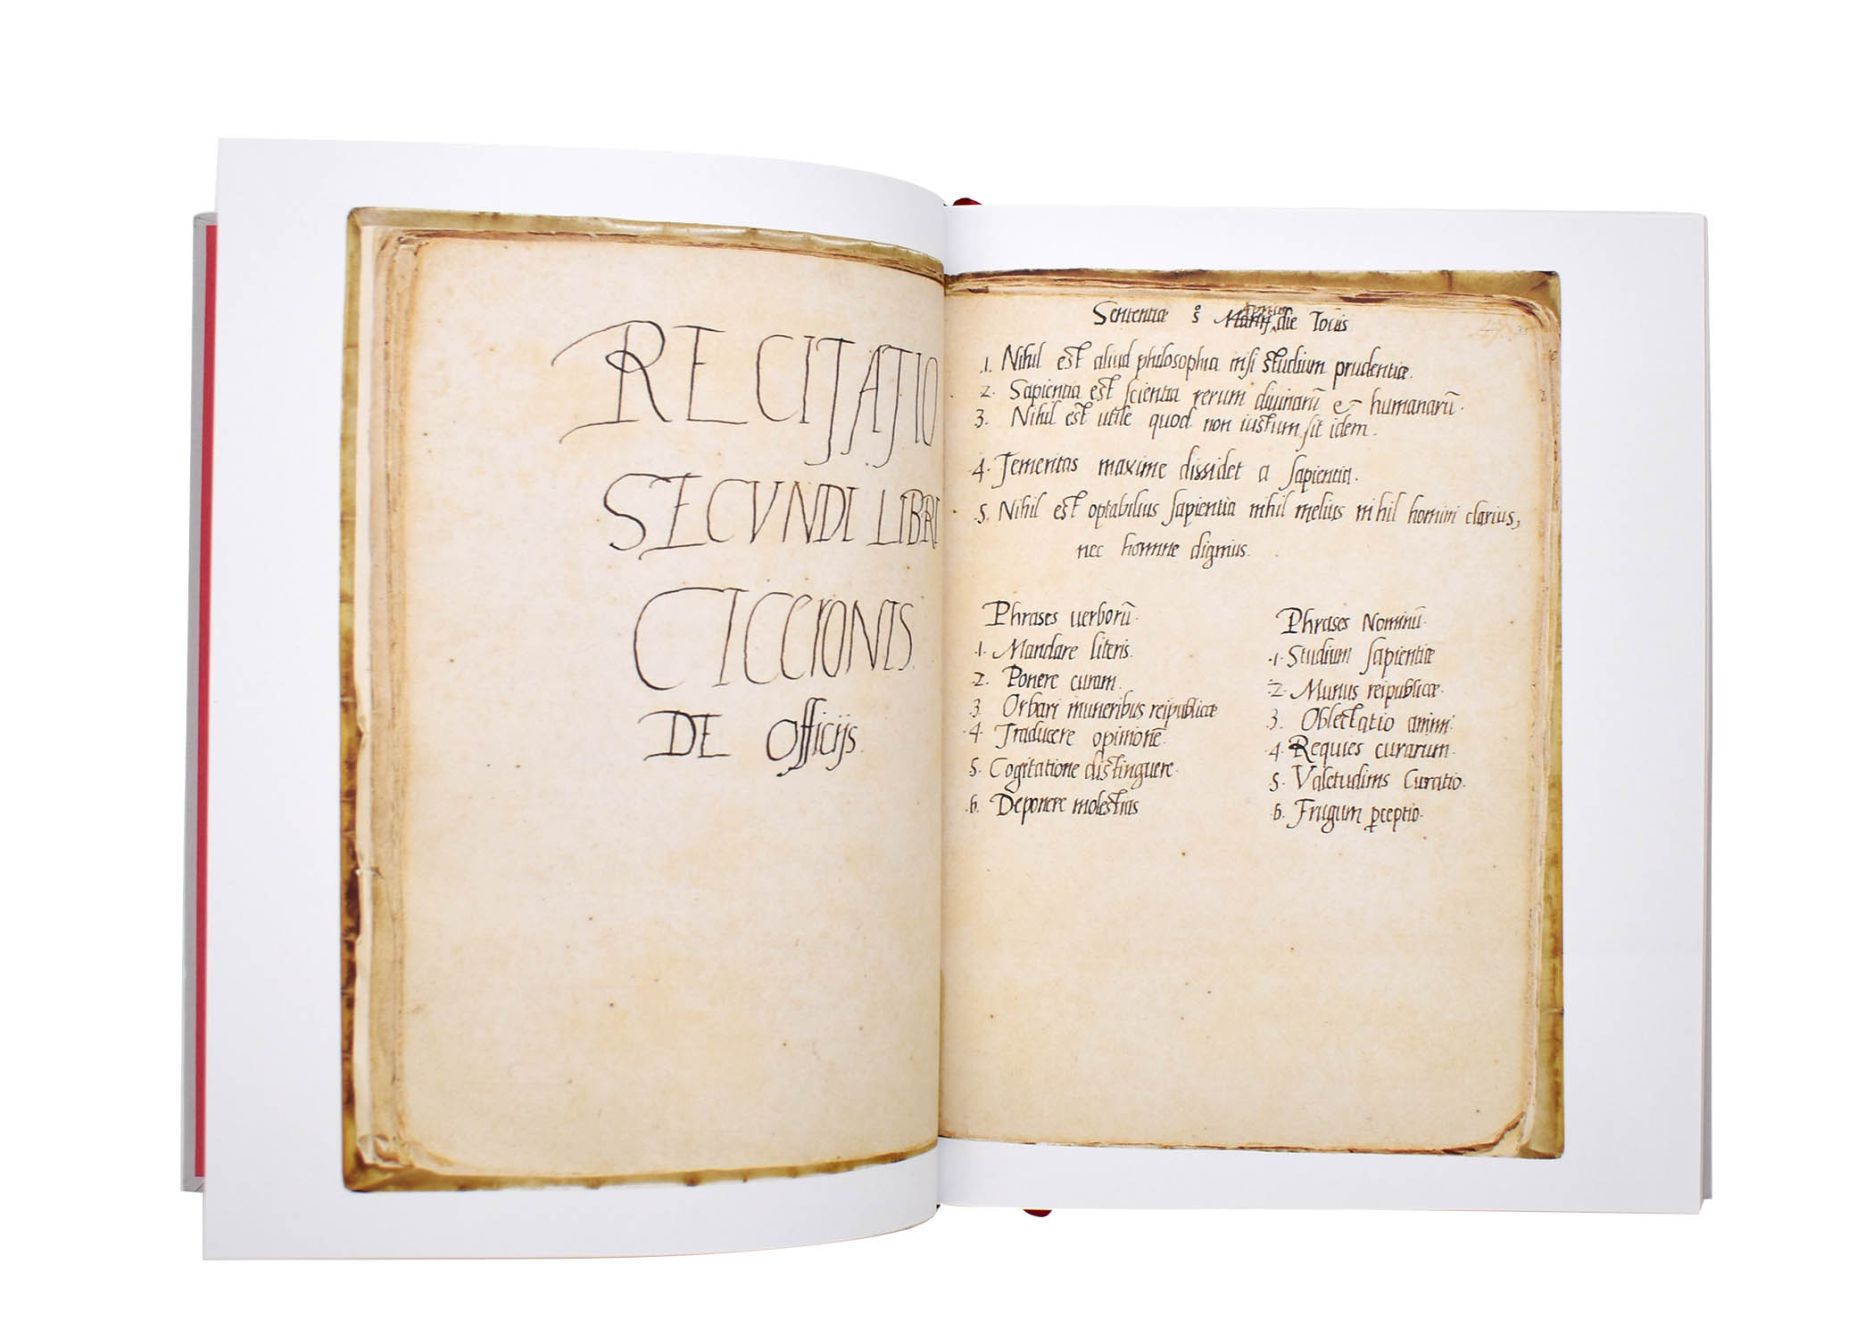 RECITATIO
SECVNDI LIBRI
CICERONIS.
DE officijs.
Sententiæ 5 die Iouis
.1. Nihil est aliud philosophia nisi studium prudentiæ.
2. Sapientia est scientia rerum diuinarū & humanarū.
3. Nihil est utile quod non iustum sit idem.
4. Temeritas maxime dissidet a sapientia.
.5. Nihil est optabilius sapientia nihil melius nihil homini clarius,
nec homine dignius.
Phrases uerborū.
.1. Mandare literis.
.2. Ponere curam.
3. Orbari muneribus reipublicæ
.4. Traducere opinionē.
5. Cogitatione distinguere.
.6. Deponere molestias
Phrases Nominū.
.1. Studium sapientiæ
.2. Munus reipublicæ.
3. Oblectatio animi.
.4. Requies curarum.
5. Valetudinis Curatio.
.6. Frugum ꝑceptio.